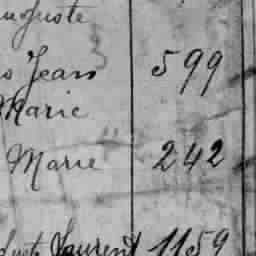 Auguste
Jean 599
Marie
Marie 242
Laurent 1159